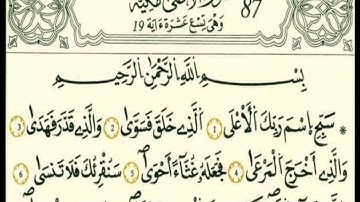 87
وَهِيَ تِسْعَ عَشَرَةَ ءَايَة 19
بِسْمِ اللَّهِ الرَّحْمَٰنِ الرَّحِيمِ
* سَبِّحِ اِسْمَ رَبِّكَ اَلْأَعْلَى 1 اَلَّذِي خَلَقَ فَسَوَّىٰ 2 وَالَّذِي قَدَّرَ فَهَدَىٰ 3
وَالَّذِي أَخْرَجَ اَلْمَرْعَىٰ 4 فَجَعَلَهُ غُثَآءً أَحْوَىٰ 5 سَنُقْرِئُكَ فَلَا تَنسَىٰ 6